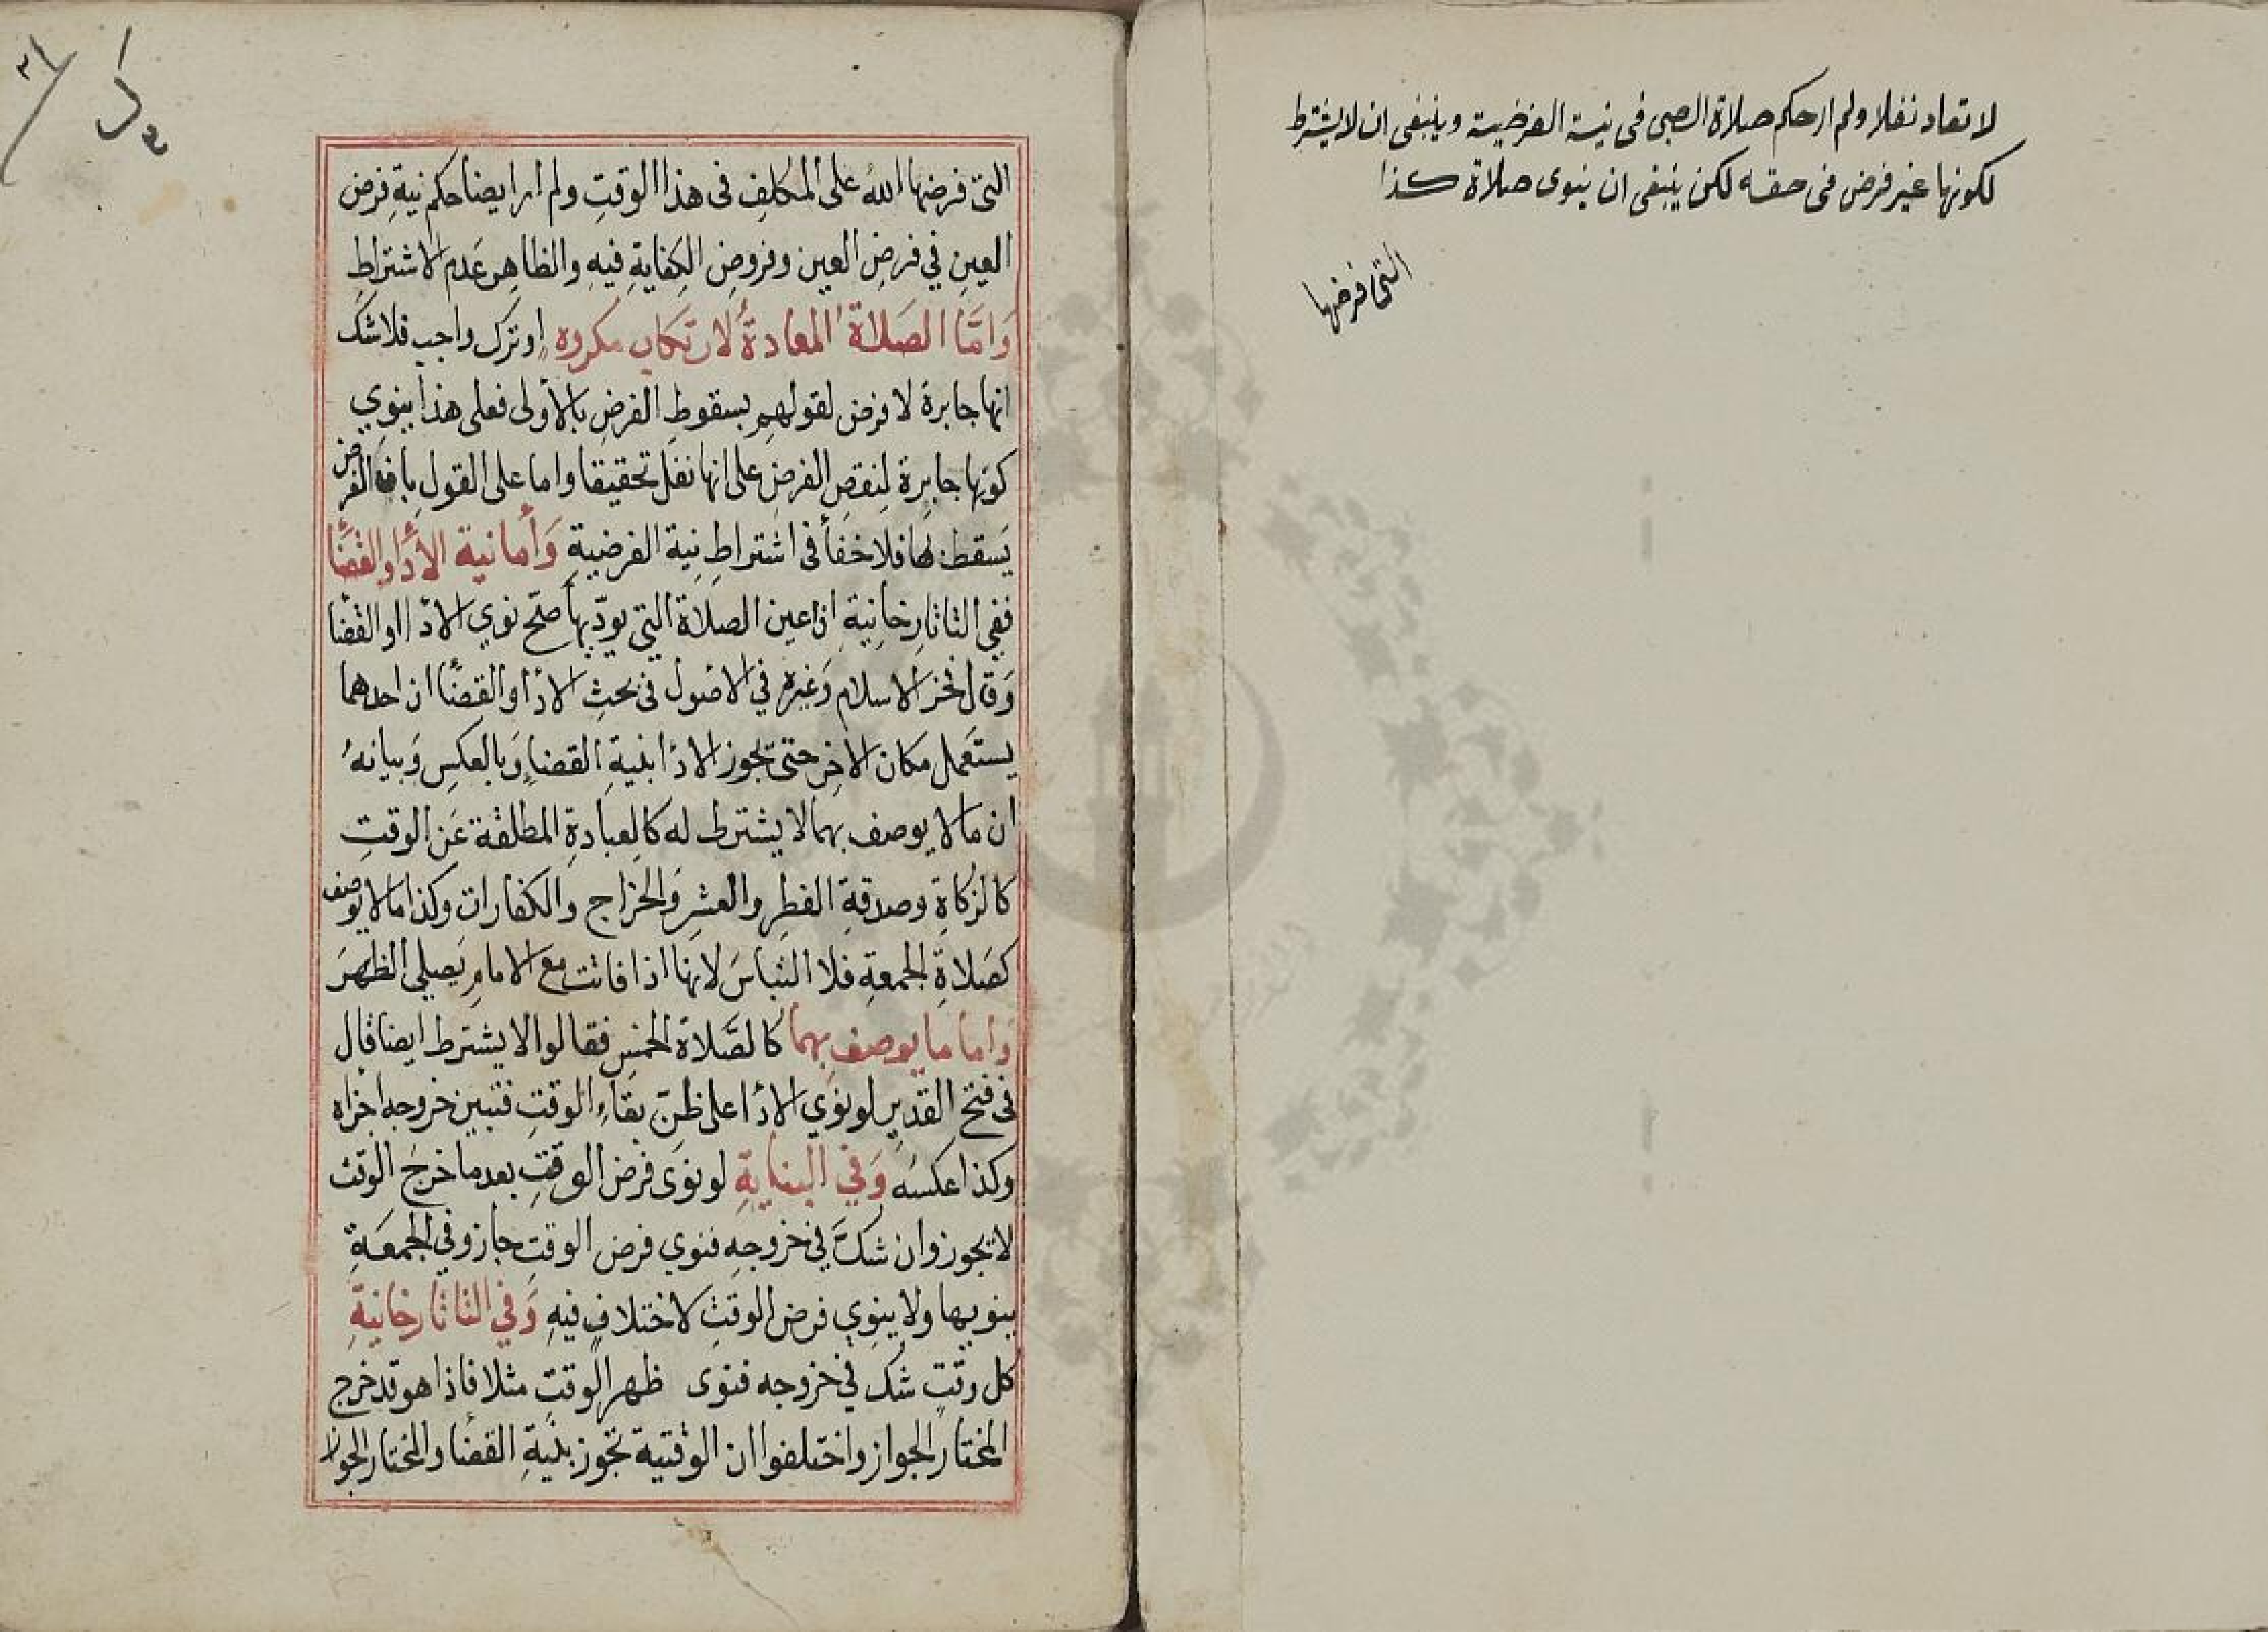 لا تعاد نفلا ولم ار حكم صلاة الصبي فى نية الفرضية وينبغى ان لا يشترط
لكونها غير فرض فى حقه لكن ينبغى ان ينوى صلاة كذا
التى فرضها
التى فرضها اللهُ على المكلفِ فى هذا الوقتِ ولم ار ايضا حكم نيةِ فرض
العينِ في فرضِ العينِ وفروضِ الكِفايةِ فيهِ والظاهِر عَدم الاشتراطِ
وَامَّا الصَلاة المعادةُ لارتكاب مكروه او ترك واجب فلا شك
انها جابرة لا فرض لقولهم بسقوطِ الفرضِ بالأولى فعلى هذا ينوي
كونها جابرة لِنقصِ الفرضِ على انها نفل تحقيقا واما على القولِ بان الفرض
يَسقط بها فلا خفأ فى اشتراطِ نية الفرضيةِ وَأما نية الأدا والقضا
ففي التاتارخانِيةِ اذا عين الصلاة التي يودّيها صحّ نوي الادا او القضا
وَقال فخر الاسلام وَغيره في الاصول فى بحثِ الادا والقضا ان احدهما
يستعمل مكان الاخر حتى تجوز الادا بنيةِ القضاءِ وَبالعكسِ وَبيانهُ
ان ما لا يوصف بهما لا يشترط له كالعبادةِ المطلقة عَن الوقتِ
كالزكاةِ وصدقةِ الفطرِ والعشرِ وَالخراج والكفارات وكذا ما لا يوصف
كصَلاةِ الجمعةِ فلا التباسَ لانها اذا فاتت مع الامامِ يَصلي الظهرَ
وَاما ما يوصف بهما كالصَّلاة الخمسِ فقالوا لا يشترط ايضا قال
فى فتح القدير لو نوَي الادا على ظنّ بقاءِ الوقتِ فتبين خروجه اجزاه
وكذا عكسُه وَفي البنايةِ لو نوَى فرض الوقتِ بعد ما خرجَ الوقت
لا تجوز وان شكّ في خروجهِ فنوي فرض الوقتِ جاز وفي الجمعةِ
ينويها ولا ينوِي فرض الوقتِ لاختلافٍ فيهِ وَفي التاتارخانيةِ
كل وقتٍ شك في خروجه فنوى ظهر الوقتِ مثلا فاذا هو قد خرج
المختار الجواز واختلفوا ان الوقتية تجوز بنيةِ القضا والمختار الجواز